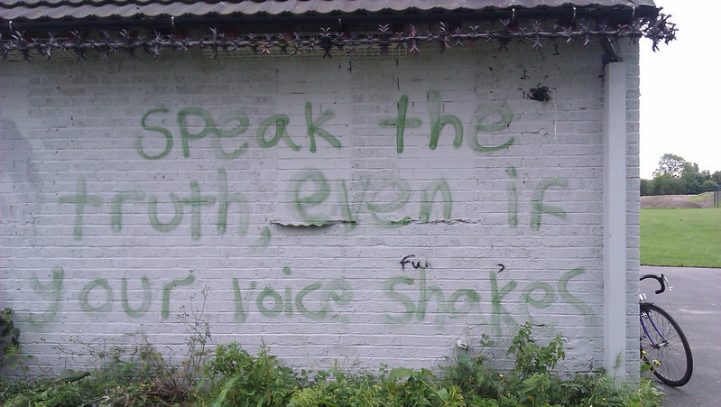 speak the
truth, even if
your voice shakes